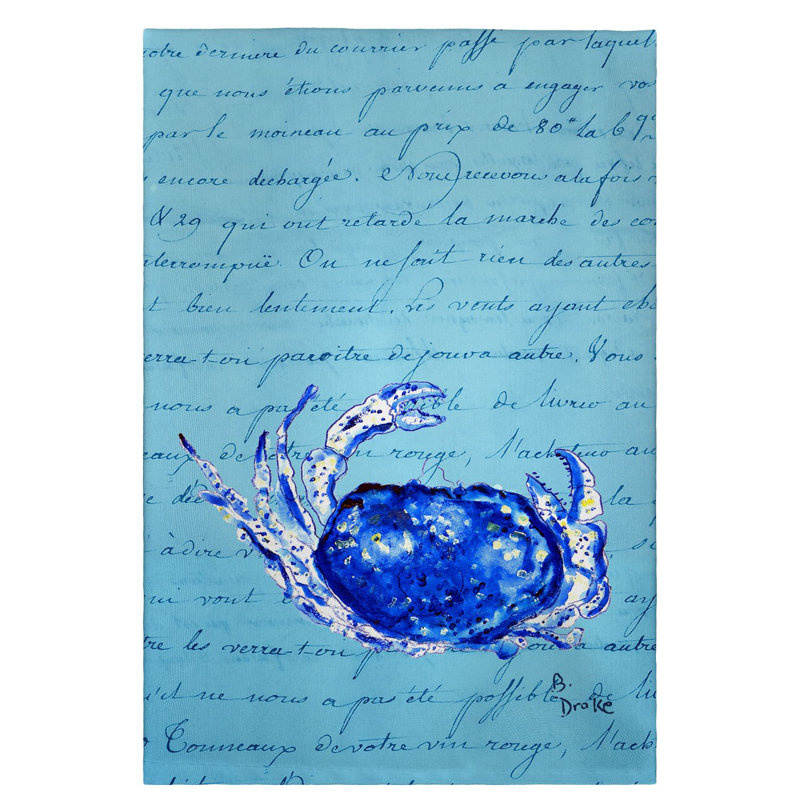 dernière du courrier passé par laquel
que nous étions parvenus a engager vo
par le moineau au prix de 80" la 6 9
encore dechargée. Nous recevons a la fois
& 29 qui ont retardé la marche des co
terrompuë. On ne foit rien des autres
t bien lentement. Les vents ayant
verra-t-on paroitre de jour a autre. Vous
nous a pas été ble de livrer au
eaux de vin rouge, l'ach au
la
à dire v
ui vont ay
tre les verra-t-on p a autre
il ne nous a pas été possible de liv
Tonneaux de votre vin rouge, l'ach
B.
Drake